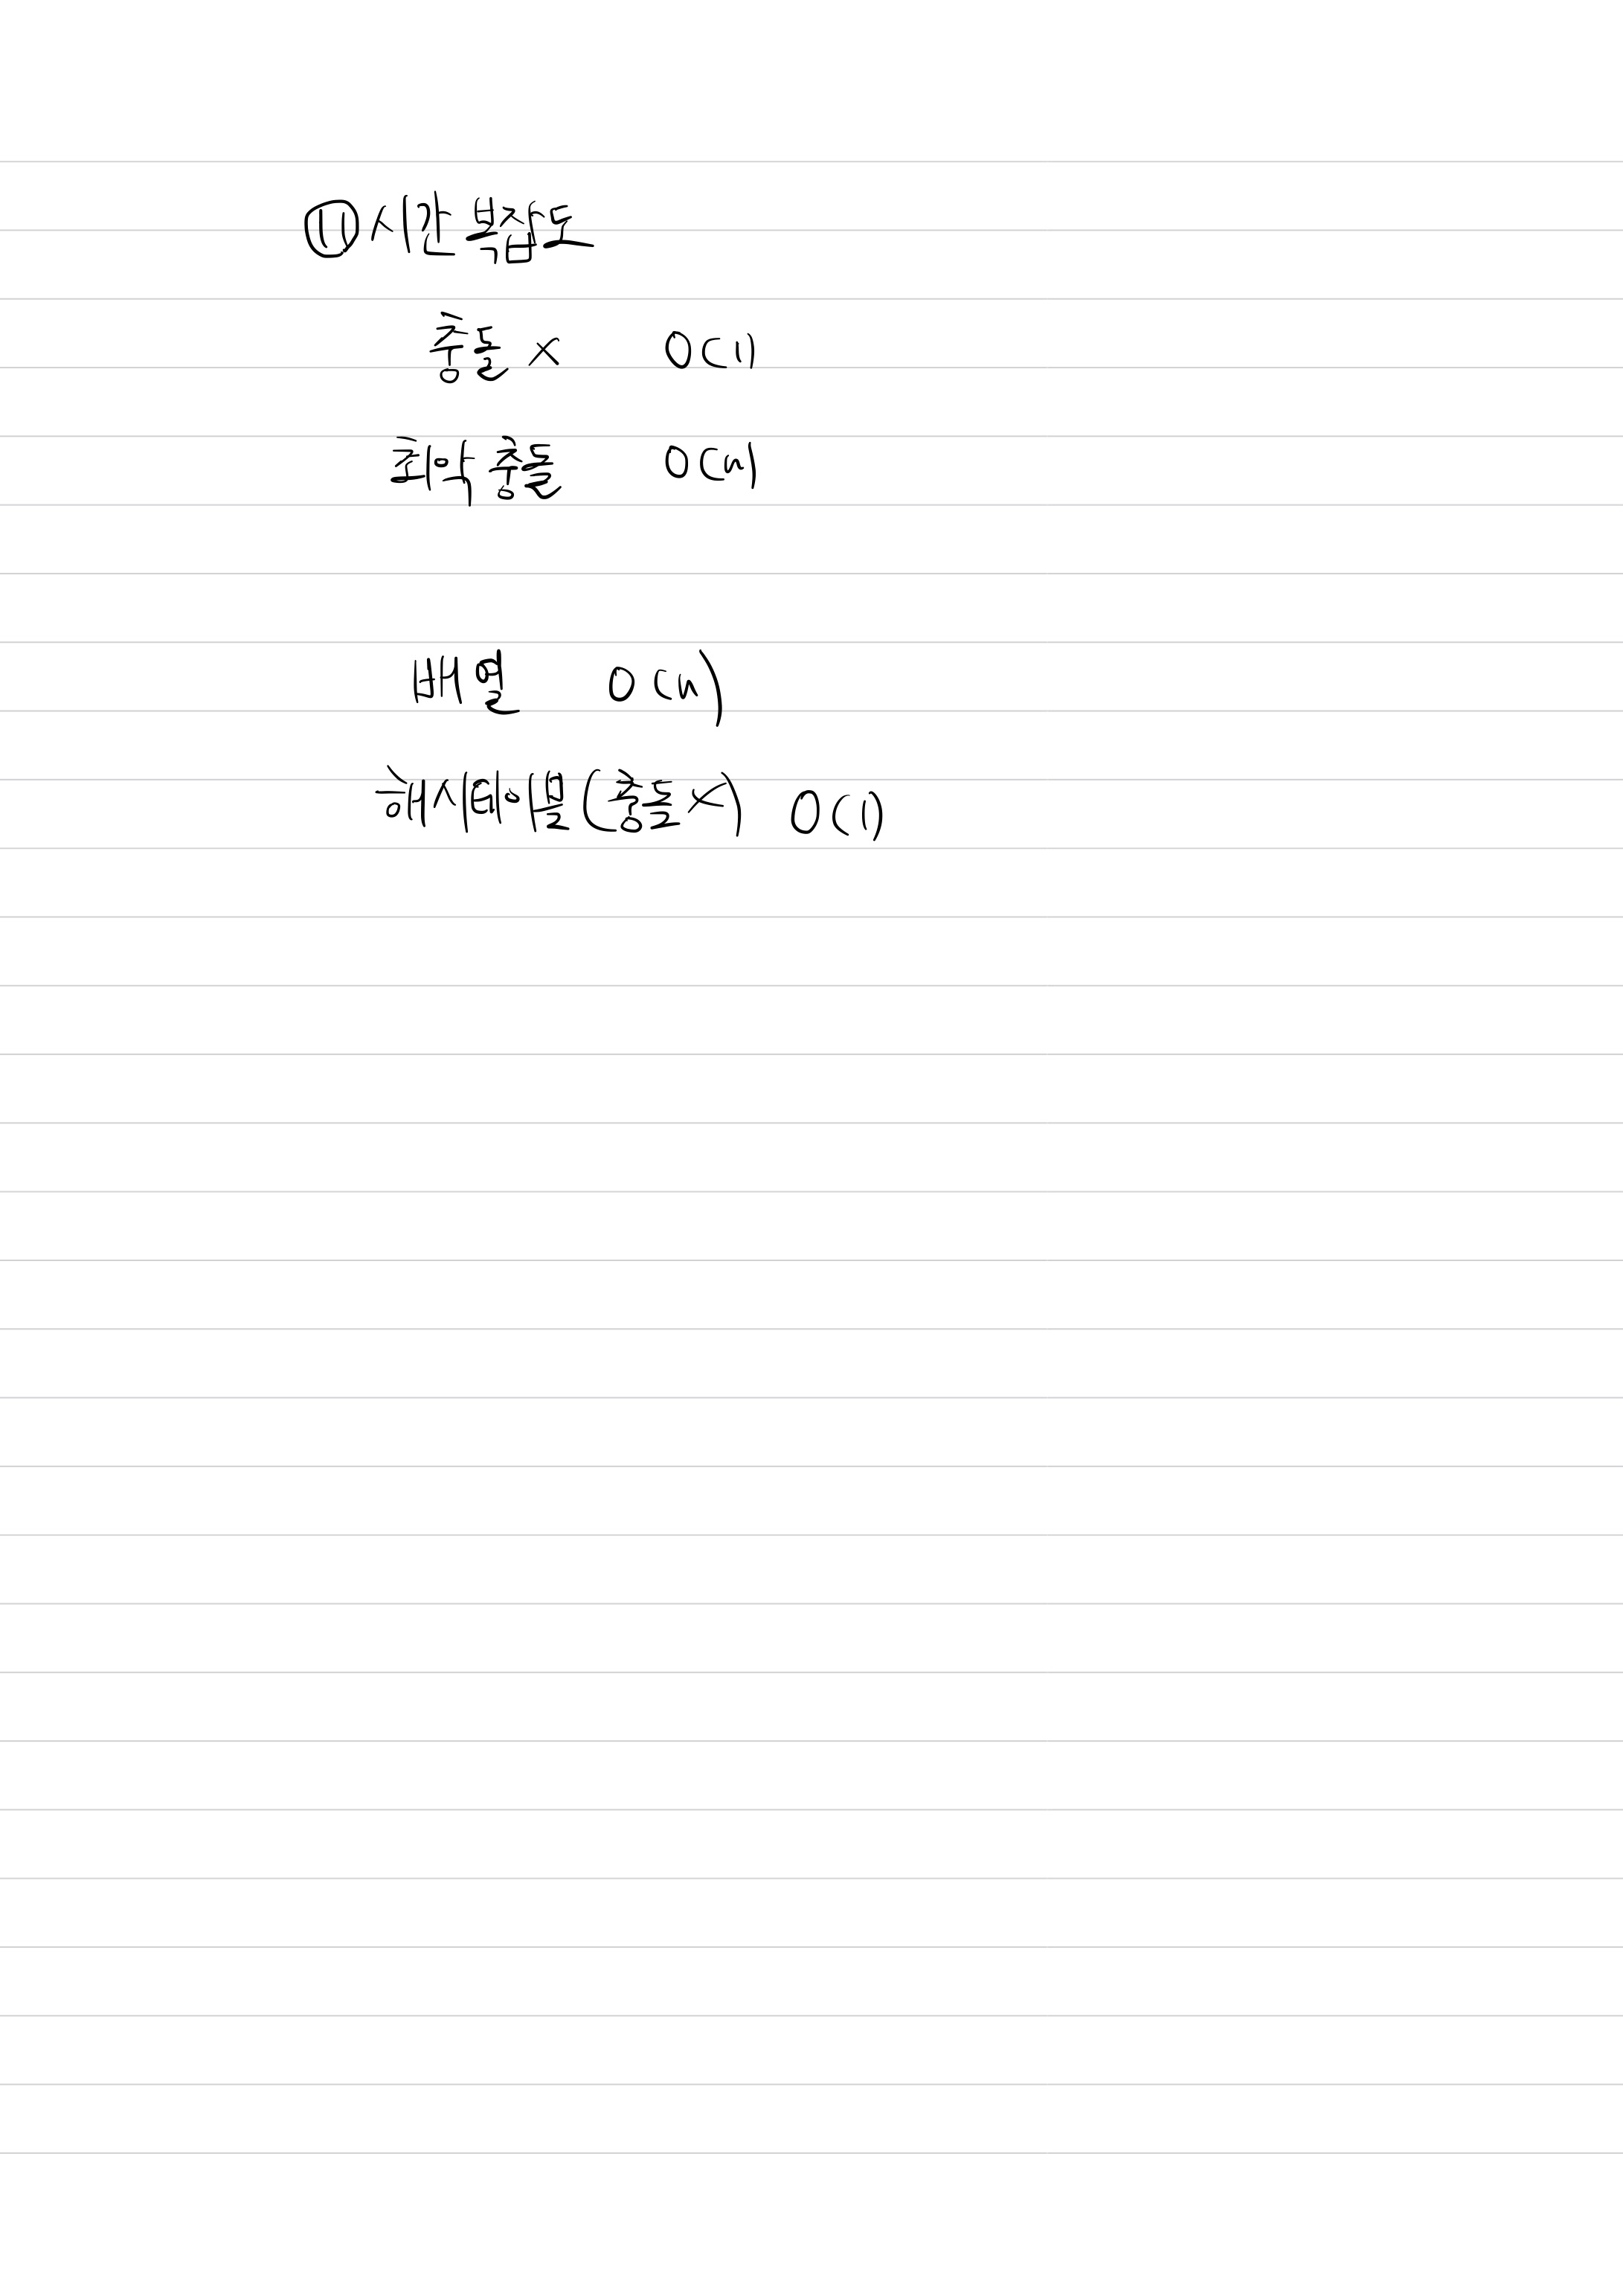 ⑪ 시간 복잡도
충돌 × O(1)
최악 충돌 O(n)
배열 O(n)
해시테이블(충돌×) O(1)